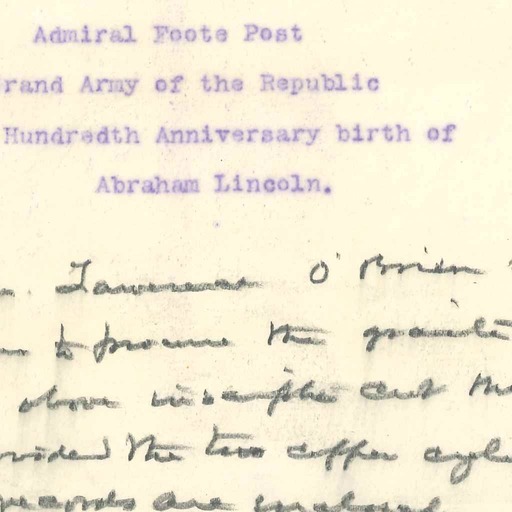 Admiral Foote Post
rand Army of the Republic
Hundredth Anniversary birth of
Abraham Lincoln.
Lawrence O'Brien
to procure the granite
above inscription cut the
ovided the two copper cyl
records are enclosed